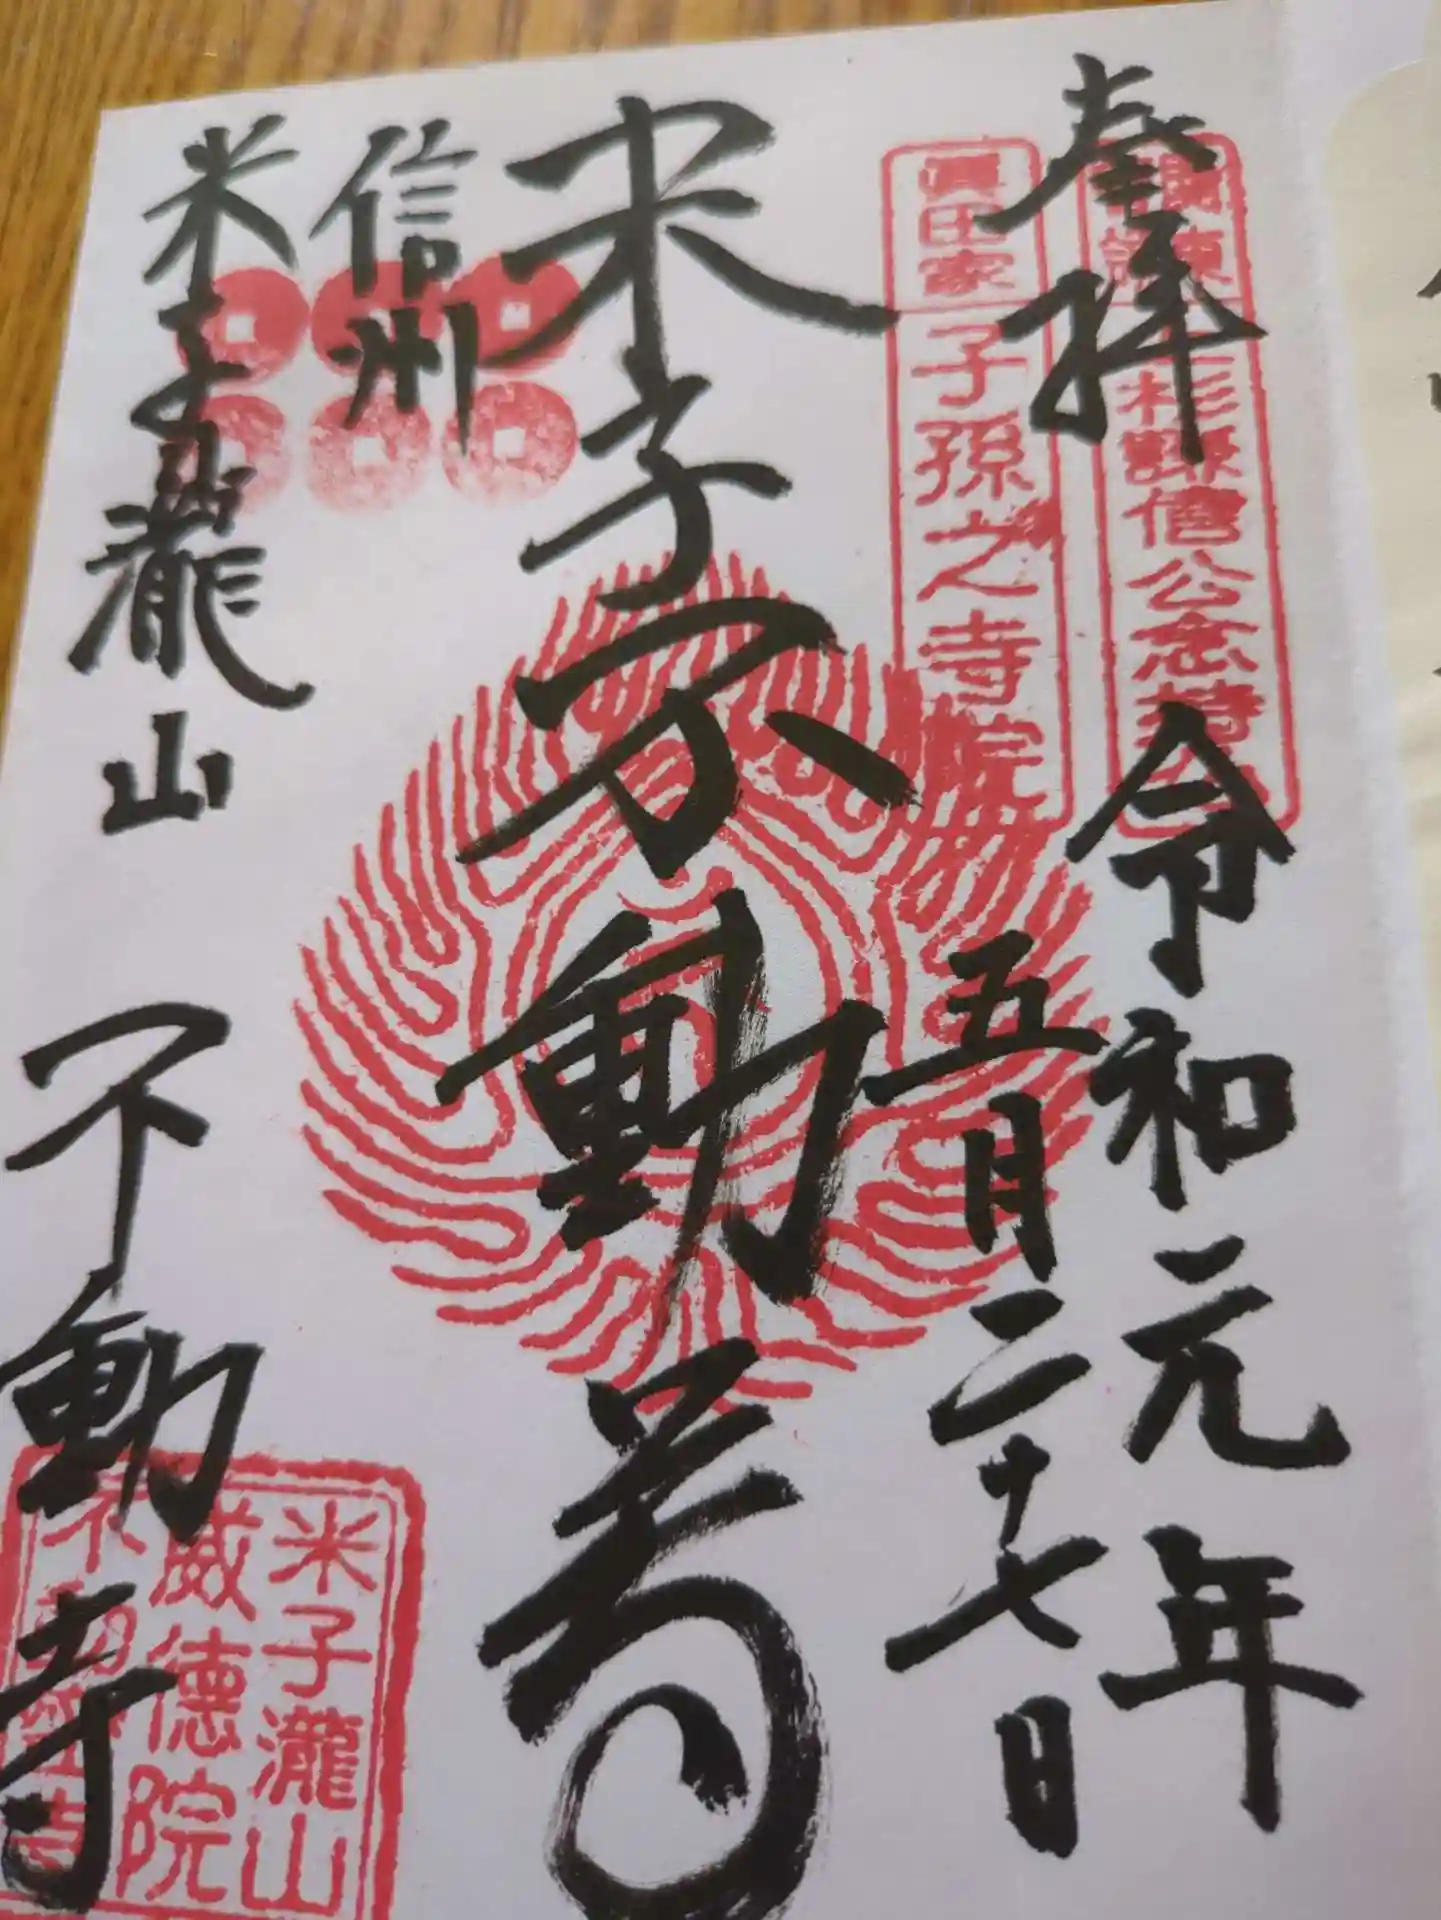 奉拝
令和元年
五月二十七日
上杉謙信公念持
眞田家 子孫之寺院
米子不動尊
信州
米子瀧山
不動寺
米子瀧山
威德院